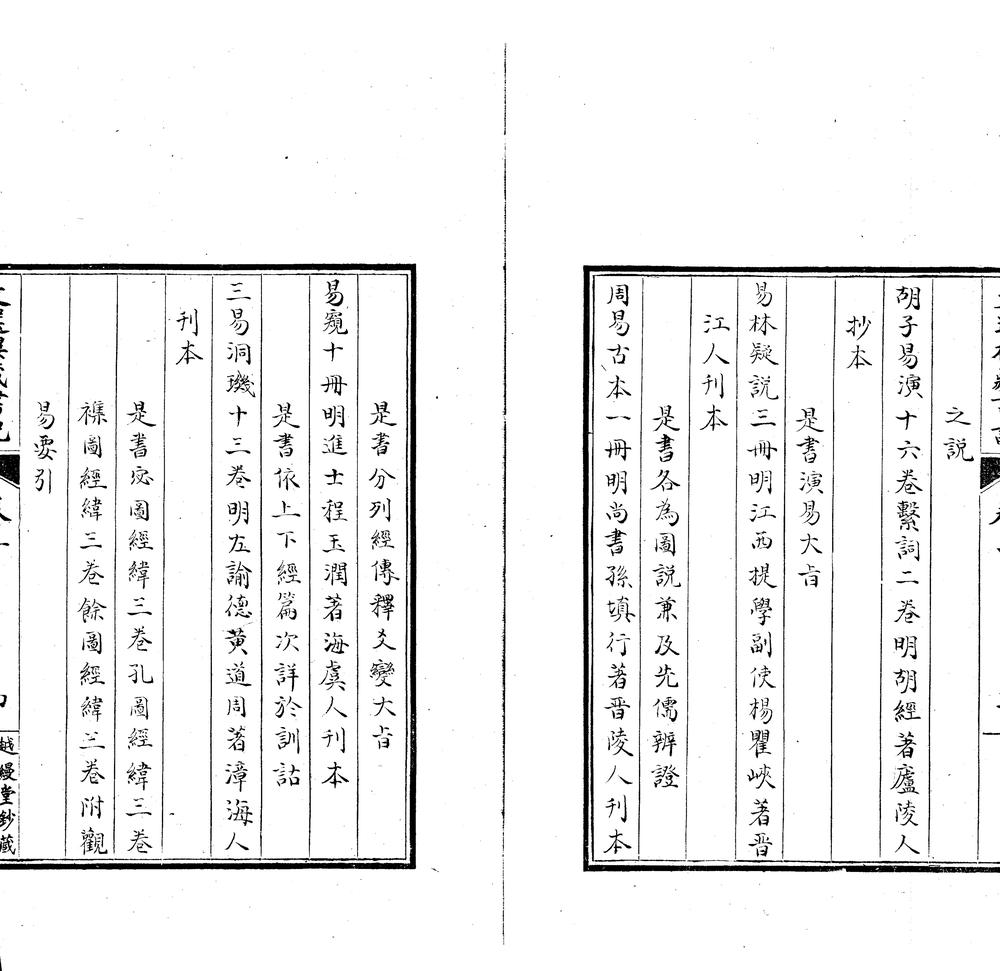 之説
胡子易演十六卷繫詞二卷明胡經著廬陵人
抄本
是書演易大旨
易林疑説三冊明江西提學副使楊瞿崍著晋
江人刊本
是書各為圖説兼及先儒辨證
周易古本一冊明尚書孫填行著晋陵人刊本
是書分列經傳釋爻變大旨
易窺十冊明進士程玉潤著海虞人刊本
是書依上下經篇次詳於訓詁
三易洞璣十三卷明左諭德黄道周著漳海人
刊本
是書宓圖經緯三卷孔圖經緯三卷
襍圖經緯三卷餘圖經緯三卷附觀
易要引
越縵堂鈔藏